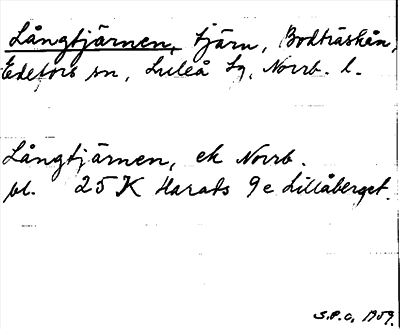 Långtjärnen, tjärn, Bodträskån,
Edefors sn, Luleå lg, Norrb. l.
Långtjärnen, ek Norrb.
bl. 25 K Harads 9e Lillåberget.
S.P.O. 1959.